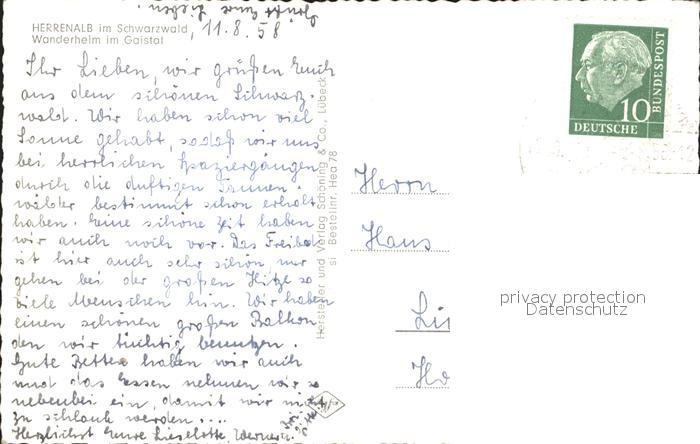 Grüßt Eure Lieben.
HERRENALB im Schwarzwald
Wanderheim im Gaistal
11.8.58
Ihr Lieben, wir grüßen Euch
aus dem schönen Schwarz-
wald. Wir haben schon viel
Sonne gehabt, sodaß wir uns
bei herrlichen Spaziergängen
durch die duftigen Tannen-
wälder bestimmt schon erholt
haben. Eine schöne Zeit haben
wir auch noch vor. Das Freibad
ist hier auch sehr schön, nur
gehen bei der großen Hitze so
viele Menschen hin. Wir haben
einen schönen großen Balkon,
den wir tüchtig benutzen.
Gute Betten haben wir auch
und das Essen nehmen wir so
nebenbei ein, damit wir nicht
zu schlank werden....
Herzlichst Eure Lieselotte, Werner
Hersteller und Verlag Schöning & Co., Lübeck
Bestellnr. Hea 78
10
DEUTSCHE
BUNDESPOST
Herrn
Hans
privacy protection
Datenschutz